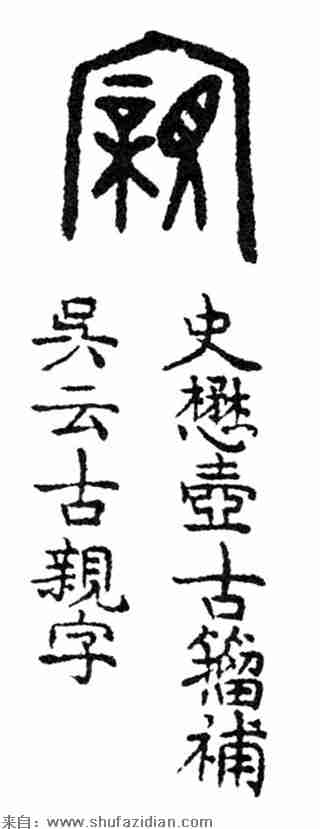 寴
史懋壺古籀補
吳云古親字
来自：www.shufazidian.com